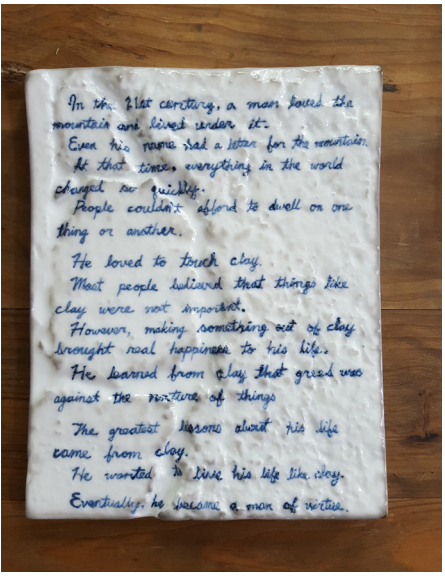 In the 21st century, a man loved the
mountain and lived under it.
Even his name had a letter for the mountain.
At that time, everything in the world
changed so quickly.
People couldn't afford to dwell on one
thing or another.
He loved to touch clay.
Most people believed that things like
clay were not important.
However, making something out of clay
brought real happiness to his life.
He learned from clay that greed was
against the nurture of things
The greatest lessons about his life
came from clay.
He wanted to live his life like clay.
Eventually, he became a man of virtue.